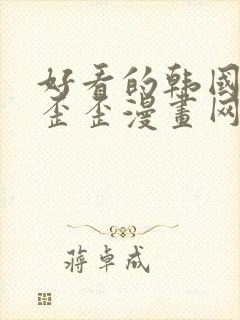 好看的韩国
歪歪漫畫网
蒋卓成